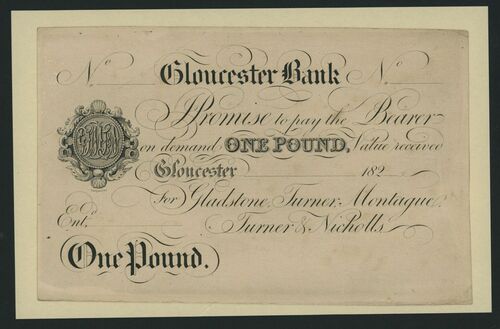 No Gloucester Bank No
I Promise to pay the Bearer
on demand ONE POUND, Value received
Gloucester 182
For Gladstone, Turner, Montague,
Entd. Turner & Nicholls
One Pound.